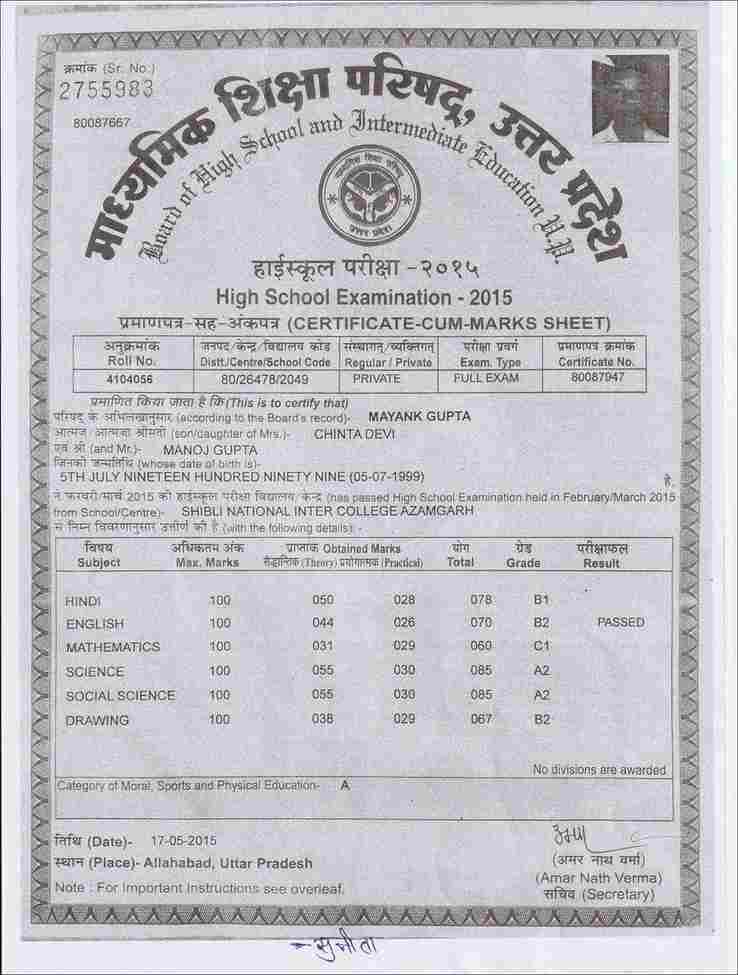 क्रमांक (Sr. No.)
2755983
80087667
माध्यमिक शिक्षा परिषद्, उत्तर प्रदेश
Board of High School and Intermediate Education U.P.
माध्यमिक शिक्षा परिषद्
उत्तर प्रदेश
हाईस्कूल परीक्षा -२०१५
High School Examination - 2015
प्रमाणपत्र-सह-अंकपत्र (CERTIFICATE-CUM-MARKS SHEET)
अनुक्रमांक जनपद/केन्द्र/विद्यालय कोड संस्थागत/व्यक्तिगत परीक्षा प्रवर्ग प्रमाणपत्र क्रमांक
Roll No. Distt./Centre/School Code Regular / Private Exam. Type Certificate No.
4104056 80/26478/2049 PRIVATE FULL EXAM 80087947
प्रमाणित किया जाता है कि (This is to certify that)
परिषद् के अभिलेखानुसार (according to the Board's record)- MAYANK GUPTA
आत्मज/आत्मजा श्रीमती (son/daughter of Mrs.)- CHINTA DEVI
एवं श्री (and Mr.)- MANOJ GUPTA
जिनकी जन्मतिथि (whose date of birth is)-
5TH JULY NINETEEN HUNDRED NINETY NINE (05-07-1999) है,
ने फरवरी/मार्च 2015 की हाईस्कूल परीक्षा विद्यालय/केन्द्र (has passed High School Examination held in February/March 2015
from School/Centre)- SHIBLI NATIONAL INTER COLLEGE AZAMGARH
से निम्न विवरणानुसार उत्तीर्ण की है (with the following details): -
विषय अधिकतम अंक प्राप्तांक Obtained Marks योग ग्रेड परीक्षाफल
Subject Max. Marks सैद्धान्तिक (Theory) प्रयोगात्मक (Practical) Total Grade Result
HINDI 100 050 028 078 B1
ENGLISH 100 044 026 070 B2 PASSED
MATHEMATICS 100 031 029 060 C1
SCIENCE 100 055 030 085 A2
SOCIAL SCIENCE 100 055 030 085 A2
DRAWING 100 038 029 067 B2
No divisions are awarded
Category of Moral, Sports and Physical Education- A
तिथि (Date)- 17-05-2015
स्थान (Place)- Allahabad, Uttar Pradesh
(अमर नाथ वर्मा)
(Amar Nath Verma)
सचिव (Secretary)
Note : For Important Instructions see overleaf.
सुनीता